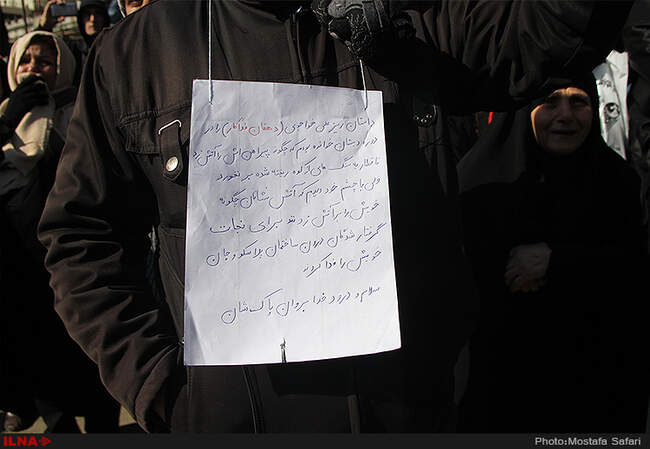 داستان ریزعلی خواجوی (دهقان فداکار) را در
دوره دبستان خوانده بودم که چگونه پیراهن اش را آتش زد
تا قطار به سنگ های از کوه ریخته شده بر نخورد
ولی با چشم خود دیدم که آتش نشانان چگونه
خویش را بر آتش زدند تا برای نجات
گرفتار شدگان درون ساختمان پلاسکو جان
خویش را فدا کردند
سلام و درود خدا بر روان پاک شان
ILNA
Photo:Mostafa Safari